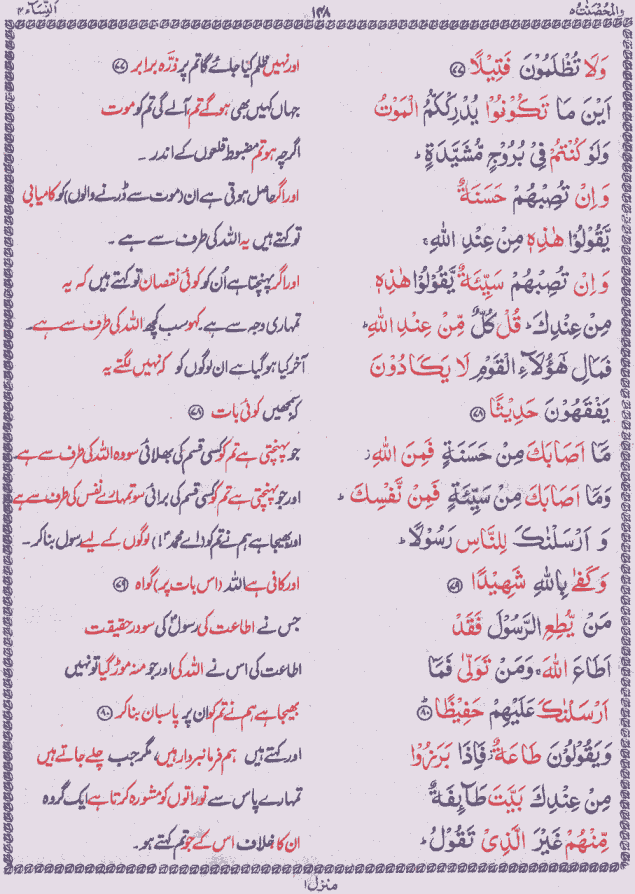 والمحصنٰت ۵
۱۴۸
النّساء ۴
وَلَا تُظْلَمُوْنَ فَتِيْلًا ﴿۷۷﴾
اور نہیں ظلم کیا جائے گا تم پر ذرّہ برابر ﴿۷۷﴾
اَيْنَ مَا تَكُوْنُوْا يُدْرِكْكُّمُ الْمَوْتُ
جہاں کہیں بھی ہوگے تم آلے گی تم کو موت
وَلَوْ كُنْتُمْ فِيْ بُرُوْجٍ مُّشَيَّدَةٍ ؕ
اگرچہ ہو تم مضبوط قلعوں کے اندر ۔
وَاِنْ تُصِبْهُمْ حَسَنَةٌ
اور اگر حاصل ہوتی ہے ان (موت سے ڈرنے والوں) کو کامیابی
يَّقُوْلُوْا هٰذِهٖ مِنْ عِنْدِ اللّٰهِ ۚ
تو کہتے ہیں یہ اللہ کی طرف سے ہے ۔
وَاِنْ تُصِبْهُمْ سَيِّئَةٌ يَّقُوْلُوْا هٰذِهٖ
اور اگر پہنچتا ہے اُن کو کوئی نقصان تو کہتے ہیں کہ یہ
مِنْ عِنْدِكَ ؕ قُلْ كُلٌّ مِّنْ عِنْدِ اللّٰهِ ؕ
تمہاری وجہ سے ہے۔ کہو سب کچھ اللہ کی طرف سے ہے۔
فَمَالِ هٰٓؤُلَآءِ الْقَوْمِ لَا يَكَادُوْنَ
آخر کیا ہوگیا ہے ان لوگوں کو کہ نہیں لگتے یہ
يَفْقَهُوْنَ حَدِيْثًا ﴿۷۸﴾
کہ سمجھیں کوئی بات ﴿۷۸﴾
مَّاۤ اَصَابَكَ مِنْ حَسَنَةٍ فَمِنَ اللّٰهِ ۫
جو پہنچتی ہے تم کو کسی قسم کی بھلائی سو وہ اللہ کی طرف سے ہے
وَمَاۤ اَصَابَكَ مِنْ سَيِّئَةٍ فَمِنْ نَّفْسِكَ ؕ
اور جو پہنچتی ہے تم کو کسی قسم کی برائی سو تمہارے نفس کی طرف سے ہے
وَ اَرْسَلْنٰكَ لِلنَّاسِ رَسُوْلًا ؕ
اور بھیجا ہے ہم نے تم کو (اے محمدؐ!) لوگوں کے لیے رسول بنا کر ۔
وَكَفٰى بِاللّٰهِ شَهِيْدًا ﴿۷۹﴾
اور کافی ہے اللہ (اس بات پر) گواہ ﴿۷۹﴾
مَنْ يُّطِعِ الرَّسُوْلَ فَقَدْ
جس نے اطاعت کی رسولؐ کی سو در حقیقت
اَطَاعَ اللّٰهَ ۚ وَمَنْ تَوَلّٰى فَمَاۤ
اطاعت کی اس نے اللہ کی اور جو منہ موڑ گیا تو نہیں
اَرْسَلْنٰكَ عَلَيْهِمْ حَفِيْظًا ﴿۸۰﴾
بھیجا ہے ہم نے تم کو ان پر پاسبان بنا کر ﴿۸۰﴾
وَيَقُوْلُوْنَ طَاعَةٌ ۫ فَاِذَا بَرَزُوْا
اور کہتے ہیں ہم فرمانبردار ہیں، مگر جب چلے جاتے ہیں
مِنْ عِنْدِكَ بَيَّتَ طَآئِفَةٌ
تمہارے پاس سے تو راتوں کو مشورہ کرتا ہے ایک گروہ
مِّنْهُمْ غَيْرَ الَّذِيْ تَقُوْلُ ؕ
ان کا خلاف اس کے جو تم کہتے ہو۔
منزل ۱